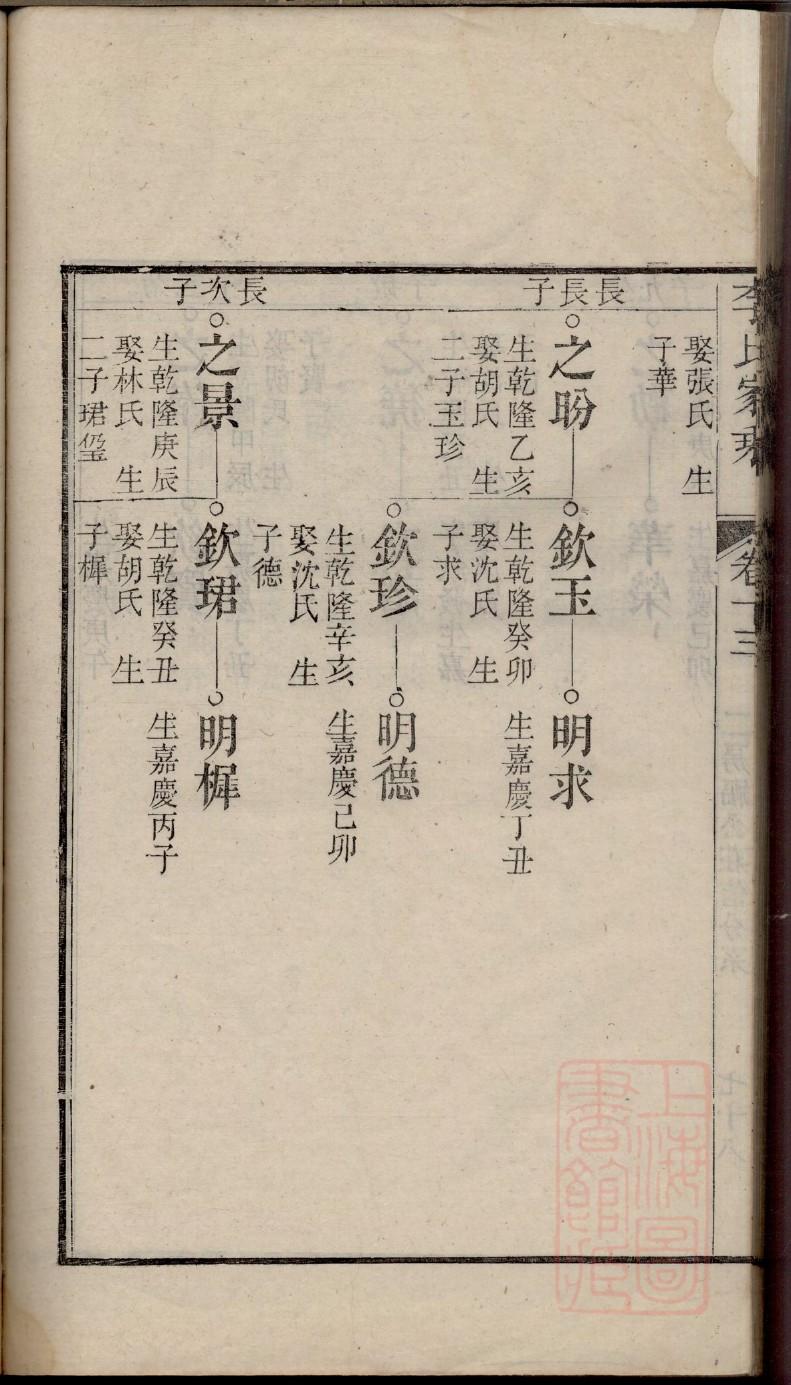 李氏家乘
卷十三
娶張氏 生
子華
長長子
之昐
生乾隆乙亥
娶胡氏 生
二子玉珍
欽玉
生乾隆癸卯
娶沈氏 生
子求
明求
生嘉慶丁丑
欽珍
生乾隆辛亥
娶沈氏 生
子德
明德
生嘉慶己卯
長次子
之景
生乾隆庚辰
娶林氏 生
二子珺
欽珺
生乾隆癸丑
娶胡氏 生
子樨
明樨
生嘉慶丙子
上海圖書館藏